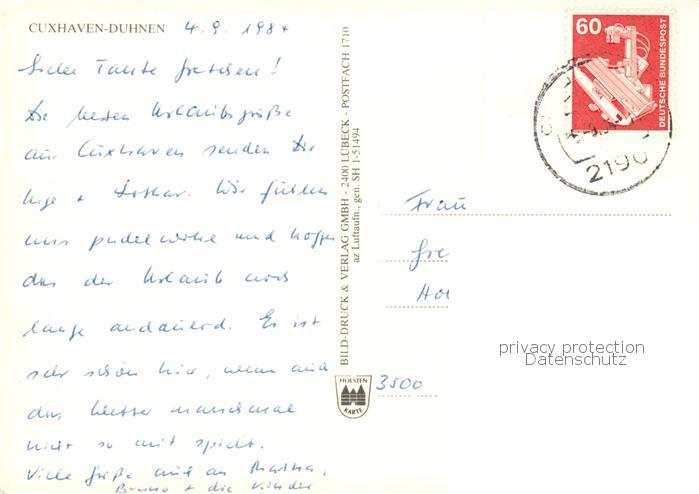 CUXHAVEN-DUHNEN 4.9. 1984
Liebe Tante Gretchen!
Die besten Urlaubsgrüße
aus Cuxhaven senden Dir
Inge + Lothar. Wir fühlen
uns pudelwohl und hoffen
das der Urlaub noch
lange andauerd. Es ist
sehr schön hier, wenn auch
das Wetter manchmal
nicht so mit spielt.
Viele Grüße auch an Martha,
Bruno + die Kinder
BILD-DRUCK & VERLAG GMBH - 2400 LÜBECK - POSTFACH 1710
az Luftaufn., gen. SH 1-51494
HOLSTEN
KARTE
60
DEUTSCHE BUNDESPOST
2190
Frau
Gre
Hol
privacy protection
Datenschutz
3500